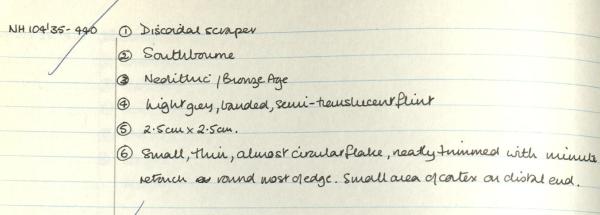 NH 104'35-440 ① Discoidal scraper
② Southbourne
③ Neolithic / Bronze Age
④ Light grey, banded, semi-translucent flint
⑤ 2.5cm x 2.5cm.
⑥ Small, thin, almost circular flake, neatly trimmed with minute
retouch round most of edge. Small area of cortex on distal end.